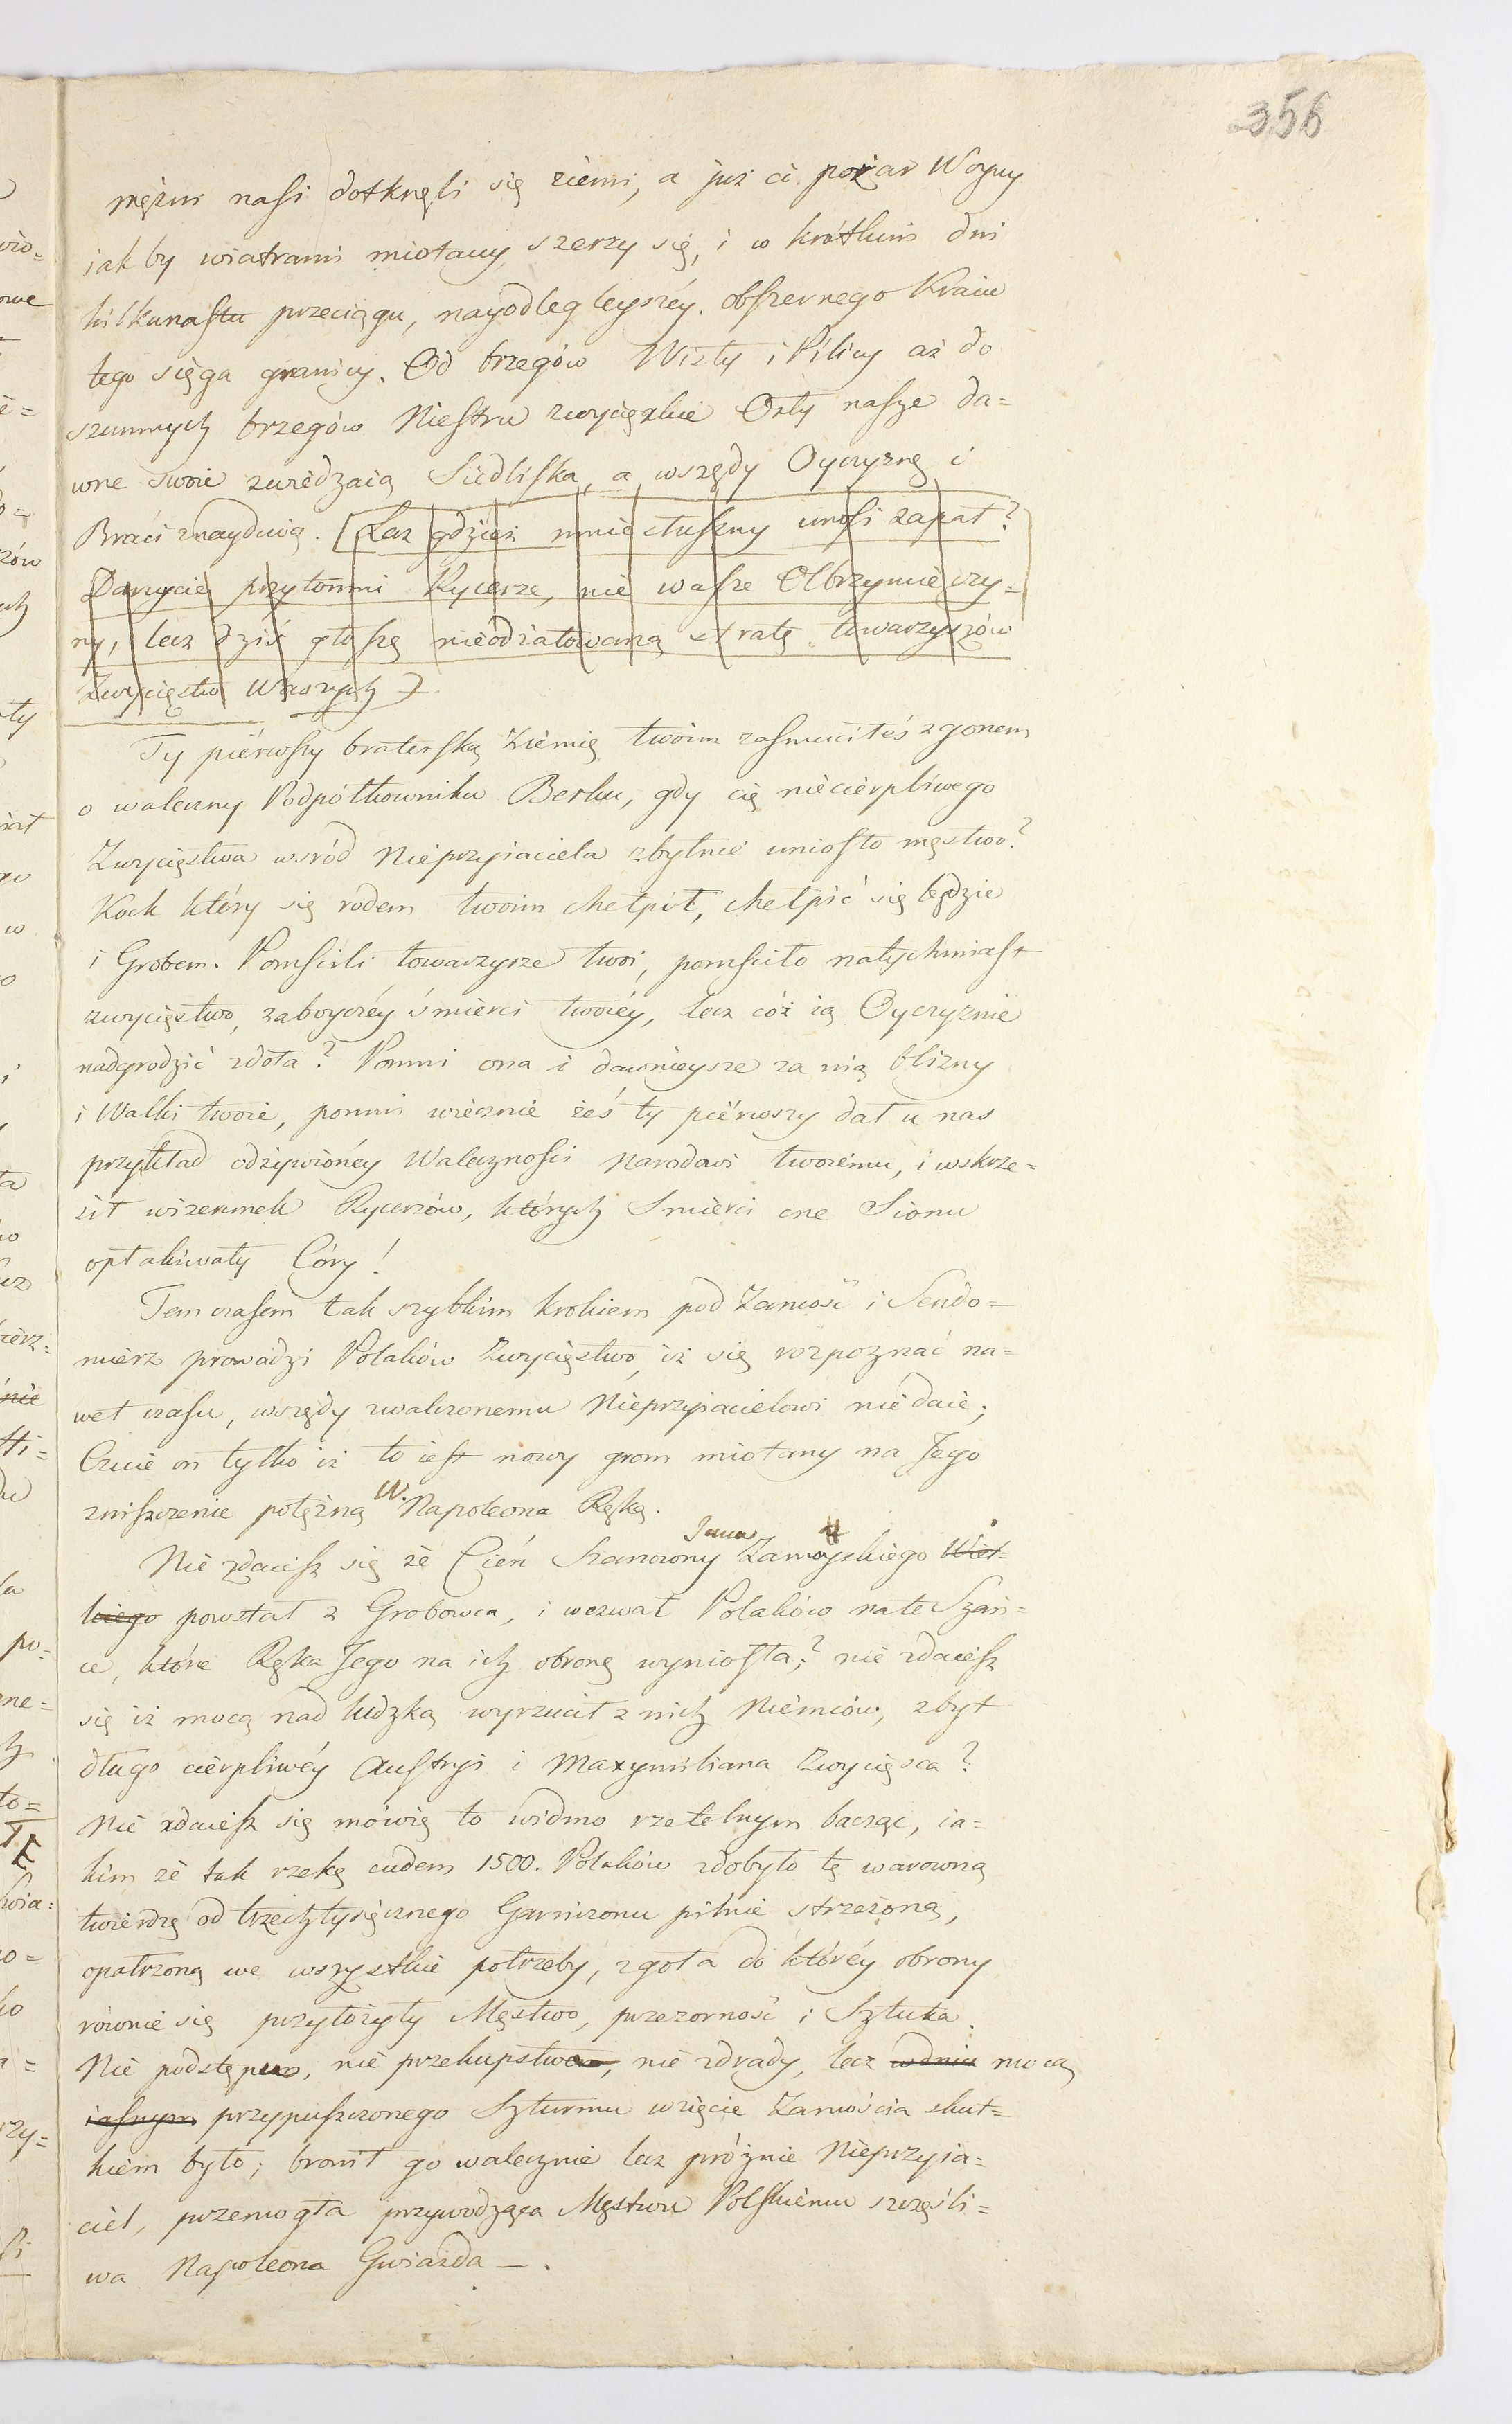 356
mężni nasi dotknęli się ziemi, a już ci pożar Woyny
iak by wiatrami miotany szerzy się, i w krótkim dni
kilkunastu przeciągu, nayodlegleyszéy obszernego Kraiu
tego sięga granicy. Od brzegów Wisły i Pilicy aż do
szumnych brzegów Niestru zwycięzkie Orły nasze da=
wne swoie zwiedzaią Siedliska, a wszędy Oyczyznę i
Braci znayduią. [Lecz gdzież mnie słuszny unosi zapał?
Darujcie przytomni Rycerze, nie wasze Olbrzymie czy=
ny, lecz dziś głoszę nieodżałowaną stratę towarzyszów
Zwycięstw Waszych].
Ty piérwszy braterską Ziémię twoim zasmuciłeś zgonem
o waleczny Podpółkowniku Berku, gdy cię niecierpliwego
Zwycięstwa wsród Nieprzyiaciela zbytnie uniosło męstwo?
Kock który się rodem twoim chełpił, chełpić się będzie
i Grobem. Pomścili towarzysze twoi, pomściło natychmiast
zwycięstwo, zaboyczéy śmierci twoiéy, lecz cóż ią Oyczyznie
nadgrodzić zdoła? Pomni ona i dawnieysze za nią blizny
i Walki twoie, pomni wiecznie żeś ty piérwszy dał u nas
przykład odżywionéy Waleczności Narodowi twoiemu, i wskrze=
sił wizerunek Rycerzów, których Smierci one Sionu
opłakiwały Córy!
Tem czasem tak szybkim krokiem pod Zamość i Sendo=
mierz prowadzi Polaków Zwycięstwo, iż się rozpoznać na=
wet czasu, wszędy zwalczonemu Nieprzyiacielowi nie daie;
Czuie on tylko iż to iest nowy grom miotany na Jego
zniszczenie potężną W. Napoleona Ręką.
Nie zdaiesz się że Cień Szanowny Jana Zamoyskiego Wiel=
kiego powstał z Grobowca, i wezwał Polaków na te Szań=
ce, które Ręka Jego na ich obronę wyniosła;? nie zdaiesz
się iż mocą nad ludzką wyrzucił z nich Niémców, zbyt
długo cierpliwéy Austryi i Maxymiliana Zwycięsca?
Nie zdaiesz się mówię to widmo rzetelnym bacząc, ia=
kim że tak rzekę cudem 1500. Polaków zdobyło tę warowną
twierdzę od trzechtysięcznego Garnizonu pilnie strzeżoną,
opatrzoną we wszystkie potrzeby, zgoła do któréy obrony
równie się przyłożyły Męstwo, przezorność i Sztuka.
Nie podstępu, nie przekupstwa, nie zdrady, lecz w dniu mocą
iasnym przypuszczonego Szturmu wzięcie Zamościa skut=
kiem było; bronił go walecznie lecz próżnie Nieprzyia=
ciel, przemogła przywodząca Męstwu Polskiemu szczęśli=
wa Napoleona Gwiazda —.